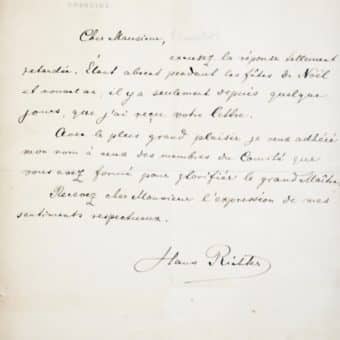 Cher Monsieur,
excusez la réponse tellement
retardée. Étant absent pendant les fêtes de Noël
et nouvel an, il y a seulement depuis quelque
jours, que j'ai reçu votre lettre.
Avec le plus grand plaisir je veux adhéré
mon nom à ceux des membres du Comité que
vous avez formé pour glorifier le grand Maître.
Recevez cher Monsieur l'expression de mes
sentiments respectueux.
Hans Richter